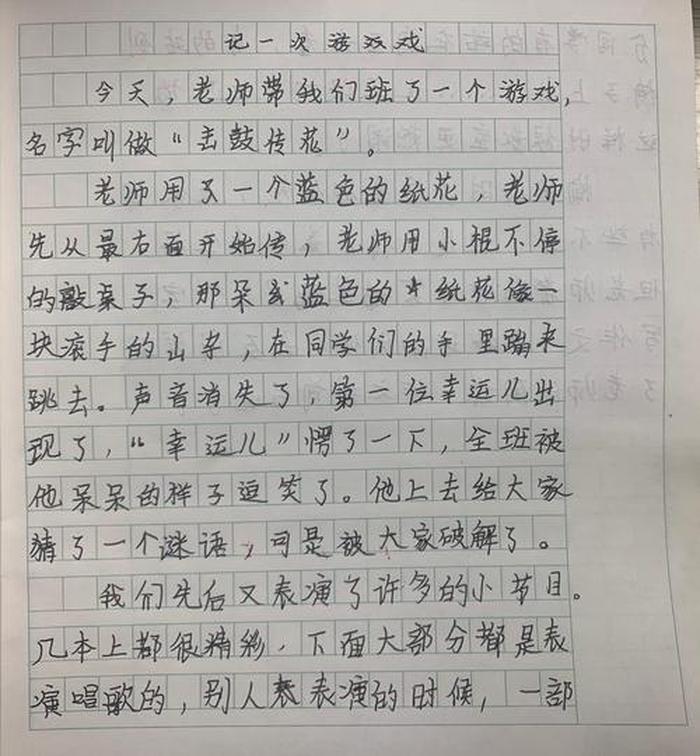 记一次游戏戏
今天，老师带我们班了一个游戏，
名字叫做“击鼓传花”。
老师用了一个蓝色的纸花，老师
先从最右面开始传，老师用小棍不停
的敲桌子，那朵蓝色的纸花像一
块滚手的山芋，在同学们的手里蹦来
跳去。声音消失了，第一位幸运儿出
现了，“幸运儿”愣了一下，全班被
他呆呆的样子逗笑了。他上去给大家
猜了一个谜语，可是被大家破解了。
我们先后又表演了许多的小节目。
几本上都很精彩，下面大部分都是表
演唱歌的，别人表演的时候，一部